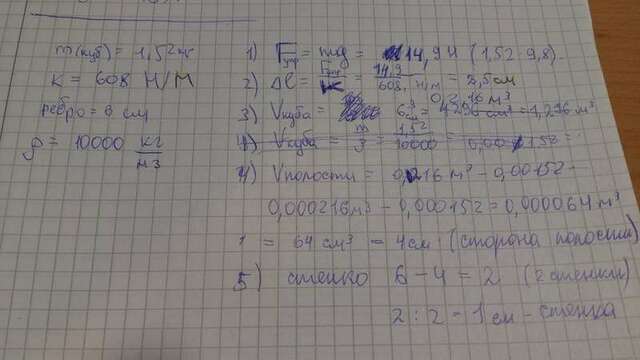 m(куб) = 1,52 кг
K = 608 Н/М
ребро = 6 см
ρ = 10000 кг/м3
1) Fупр = mg = 14,9 Н (1,52 · 9,8)
2) Δl = Fупр/K = 14,9/608 Н/м = 2,5 см
3) Vкуба = 6 см³
4) Vкуба = m/ρ = 1,52/10000 =
4) Vполости = 0,216 м³ - 0,00152 =
0,000216 м³ - 0,000152 = 0,000064 м³
= 64 см³ = 4 см (сторона полости)
5) стенка 6 - 4 = 2 (2 стенки)
2 : 2 = 1 см - стенка